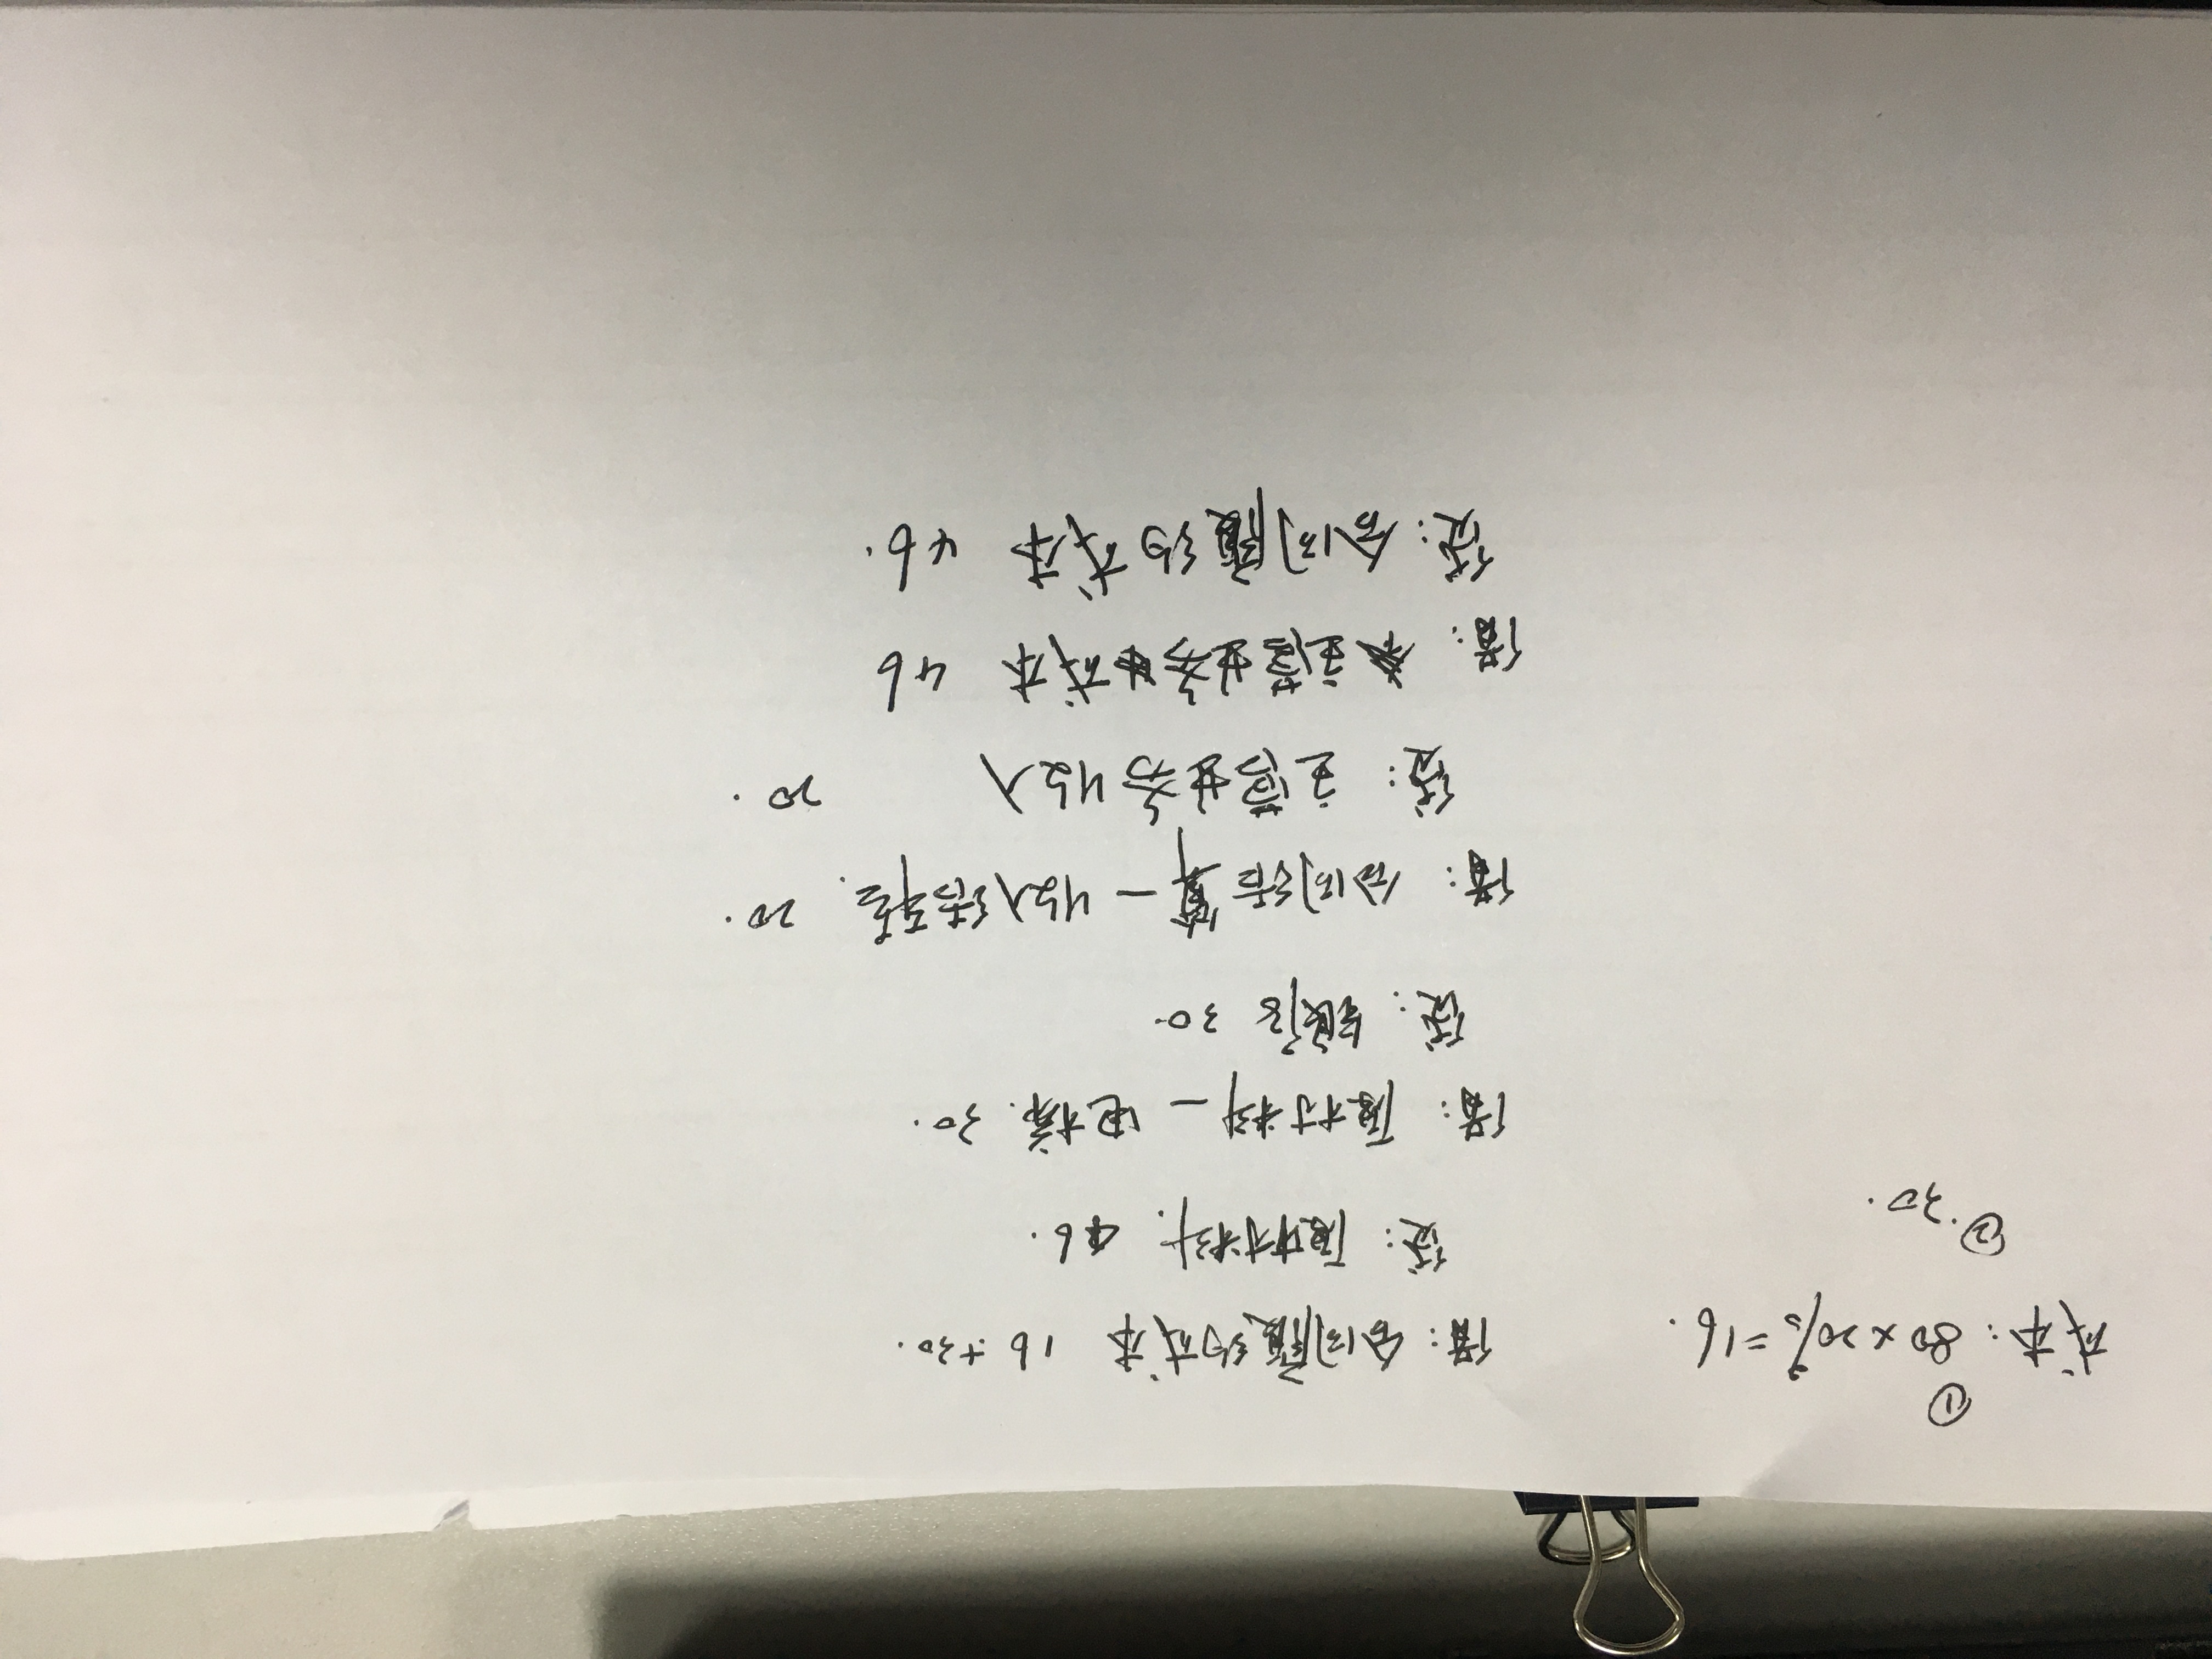 ①
成本：80×20%=16.
②.30.
借：合同履约成本 16+30.
贷：原材料. 46.
借：原材料－电梯. 30.
贷：银行 30
借：合同结算－收入结转. 20.
贷：主营业务收入 20.
借：主营业务成本 46
贷：合同履约成本 46.